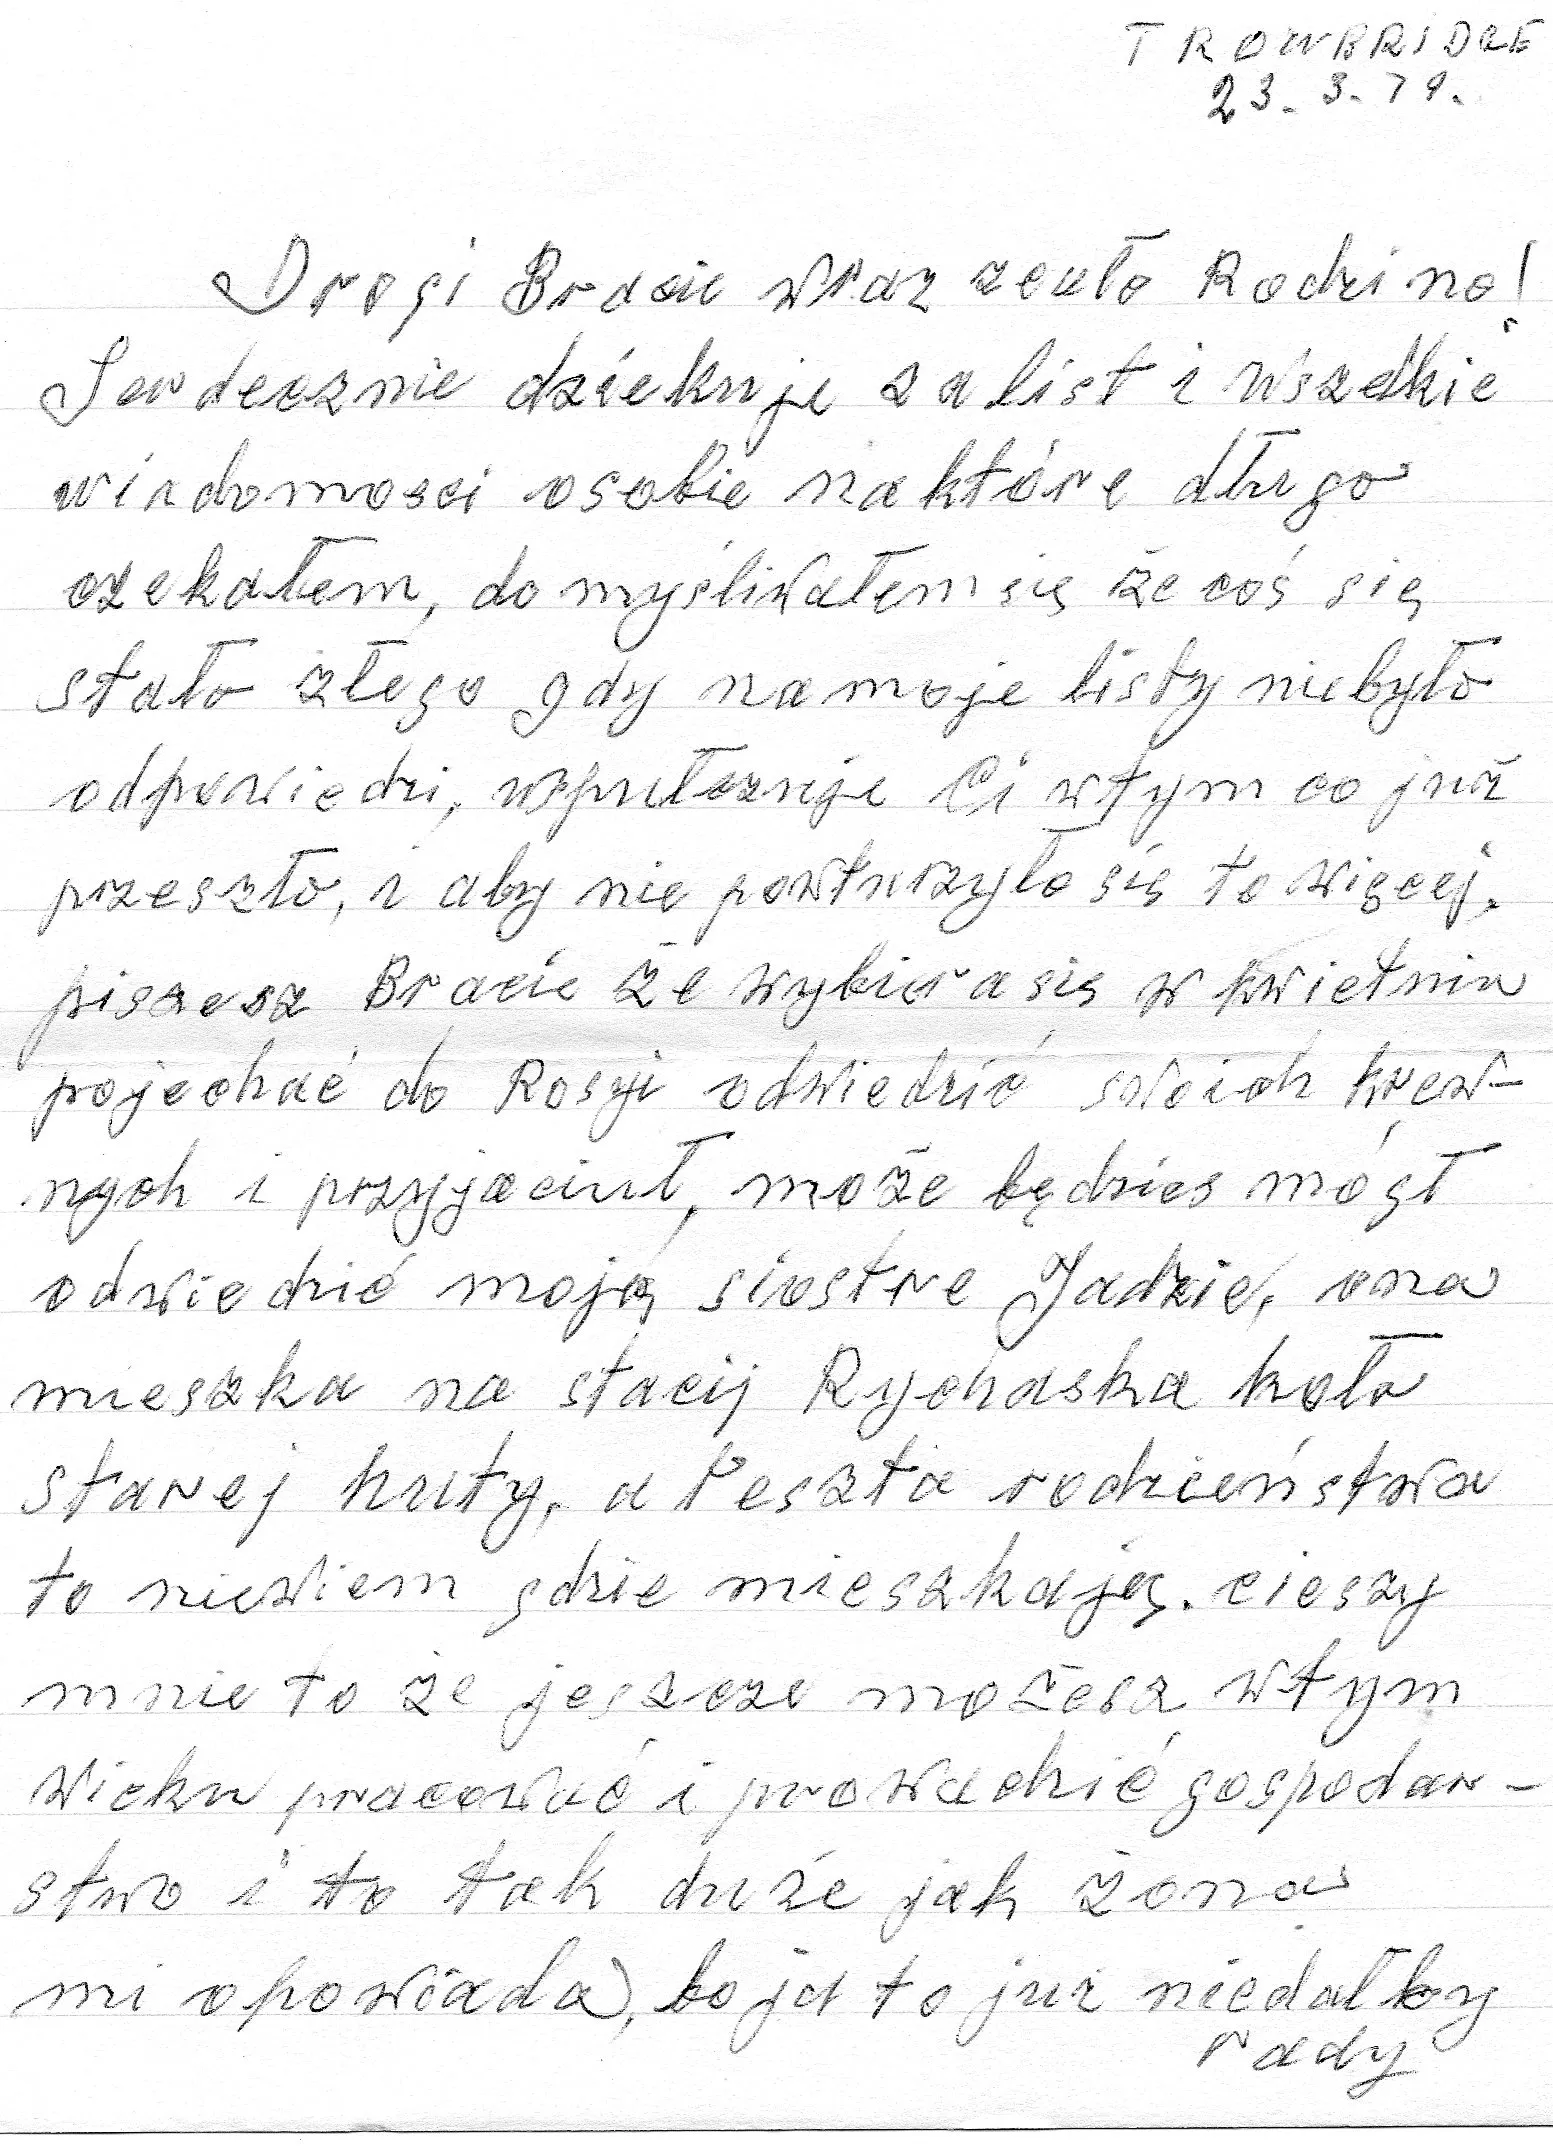 TROWBRIDGE
23-3-79.
Drogi Bracie wraz zcuło Rodzino!
Serdecznie dziekuje za list i wszelkie
wiadomosci osobie naktóre długo
czekałem, domyśliwałem się że coś się
stało złego gdy na moje listy niebyło
odpowiedzi, wspułczuje Ci wtym co już
przeszło, i aby nie powturzyło się to więcej.
piszesz Bracie że wybierasię w kwietniu
pojechać do Rosyi odwiedzić swoich krew-
nych i przyjaciuł, może będzies mógł
odwiedzić moją siostre Jadzie, ona
mieszka na stacij Rychaska koło
starej huty, a reszta rodzieństwa
to niewiem gdzie mieszkają. cieszy
mnie to że jeszcze możesz wtym
wieku pracować i prowadzić gospodar-
stwo i to tak duże jak żona
mi opowiada, bo ja to już niedałby
rady